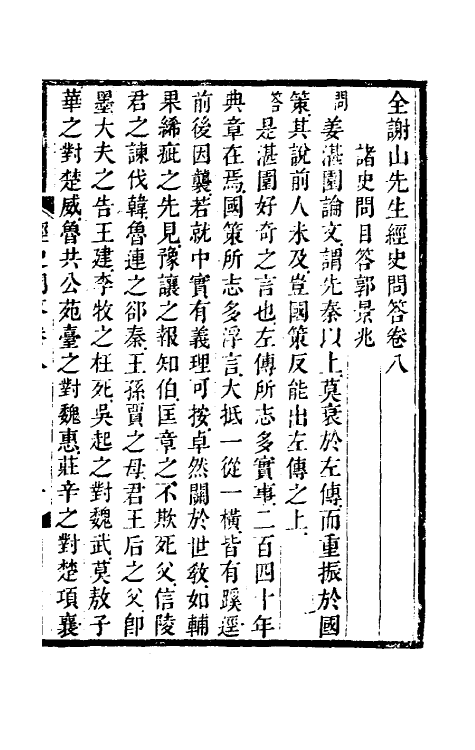 全謝山先生經史問答卷八
諸史問目答郭景兆
問姜湛園論文謂先秦以上莫衰於左傳而重振於國
策其說前人未及豈國策反能出左傳之上
答是湛園好奇之言也左傳所志多實事二百四十年
典章在焉國策所志多浮言大抵一從一橫皆有蹊徑
前後因襲若就中實有義理可按卓然關於世敎如輔
果絺疵之先見豫讓之報知伯匡章之不欺死父信陵
君之諫伐韓魯連之卻秦王孫賈之母君王后之父卽
墨大夫之告王建李牧之枉死吳起之對魏武莫敖子
華之對楚威魯共公苑臺之對魏惠莊辛之對楚項襄